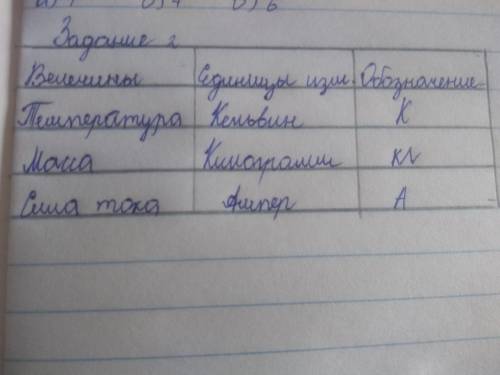 а) 1 б) 4 в) 6
Задание 2
Велечины Единицы изм. Обозначение
Температура Кельвин К
Масса Килограмм кг
Сила тока Ампер А